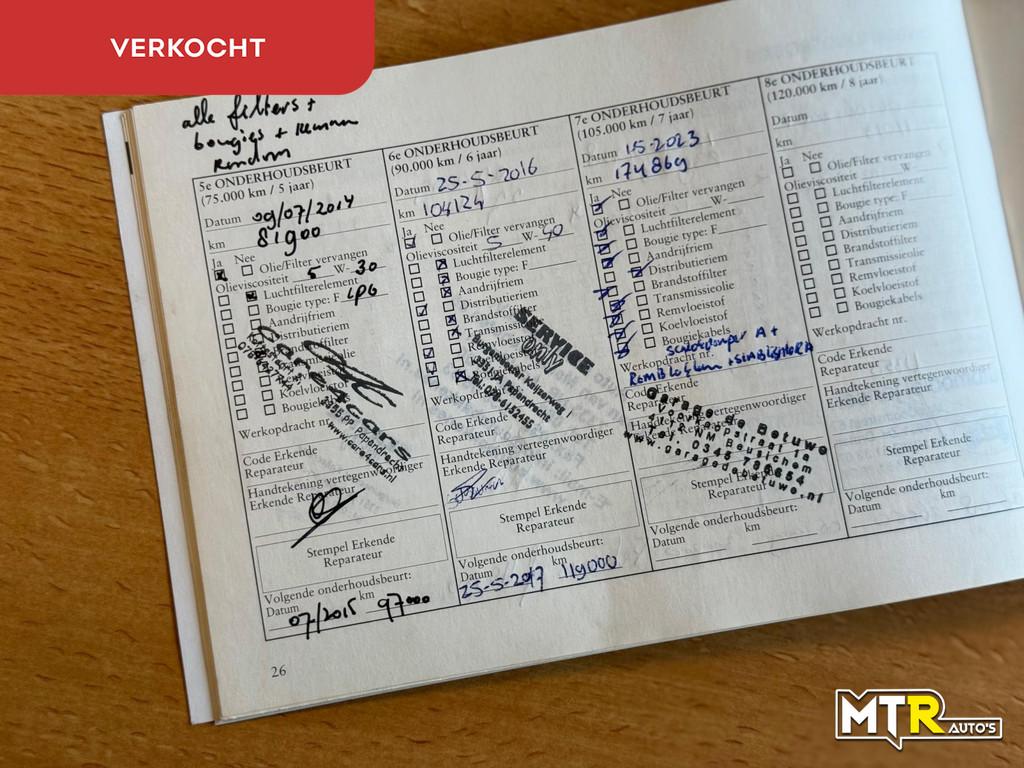 VERKOCHT
alle filters +
bougies + remmen
rondom
5e ONDERHOUDSBEURT
(75.000 km / 5 jaar)
Datum 09/07/2014
km 81900
Ja Nee
Olie/Filter vervangen
Olieviscositeit 5 W-30
Luchtfilterelement
Bougie type: F LPG
Aandrijfriem
Distributieriem
Koelvloeistof
Bougiekabels
Werkopdracht nr.
Code Erkende
Reparateur
Handtekening vertegenwoordiger
Erkende Reparateur
Stempel Erkende
Reparateur
Volgende onderhoudsbeurt:
Datum km
07/2015 97000
6e ONDERHOUDSBEURT
(90.000 km / 6 jaar)
Datum 25-5-2016
km 104124
Ja Nee
Olie/Filter vervangen
Olieviscositeit 5 W-40
Luchtfilterelement
Bougie type: F
Aandrijfriem
Distributieriem
Brandstoffilter
SERVICE
Only
Papendrecht
Code Erkende
Reparateur
Handtekening vertegenwoordiger
Erkende Reparateur
Stempel Erkende
Reparateur
Volgende onderhoudsbeurt:
Datum km
25-5-2017 119000
7e ONDERHOUDSBEURT
(105.000 km / 7 jaar)
Datum 1-5-2023
km 174869
Ja Nee
Olie/Filter vervangen
Olieviscositeit W-
Luchtfilterelement
Bougie type: F
Aandrijfriem
Distributieriem
Brandstoffilter
Transmissieolie
Remvloeistof
Koelvloeistof
Bougiekabels
Werkopdracht nr.
Code Erkende
Garage de Betuwe
Beusichem
www.garagedebetuwe.nl
Stempel Erkende
Reparateur
Volgende onderhoudsbeurt:
Datum km
8e ONDERHOUDSBEURT
(120.000 km / 8 jaar)
Datum
km
Ja Nee
Olie/Filter vervangen
Olieviscositeit W-
Luchtfilterelement
Bougie type: F
Aandrijfriem
Distributieriem
Brandstoffilter
Transmissieolie
Remvloeistof
Koelvloeistof
Bougiekabels
Werkopdracht nr.
Code Erkende
Reparateur
Handtekening vertegenwoordiger
Erkende Reparateur
Stempel Erkende
Reparateur
Volgende onderhoudsbeurt:
Datum km
26
MTR AUTO'S